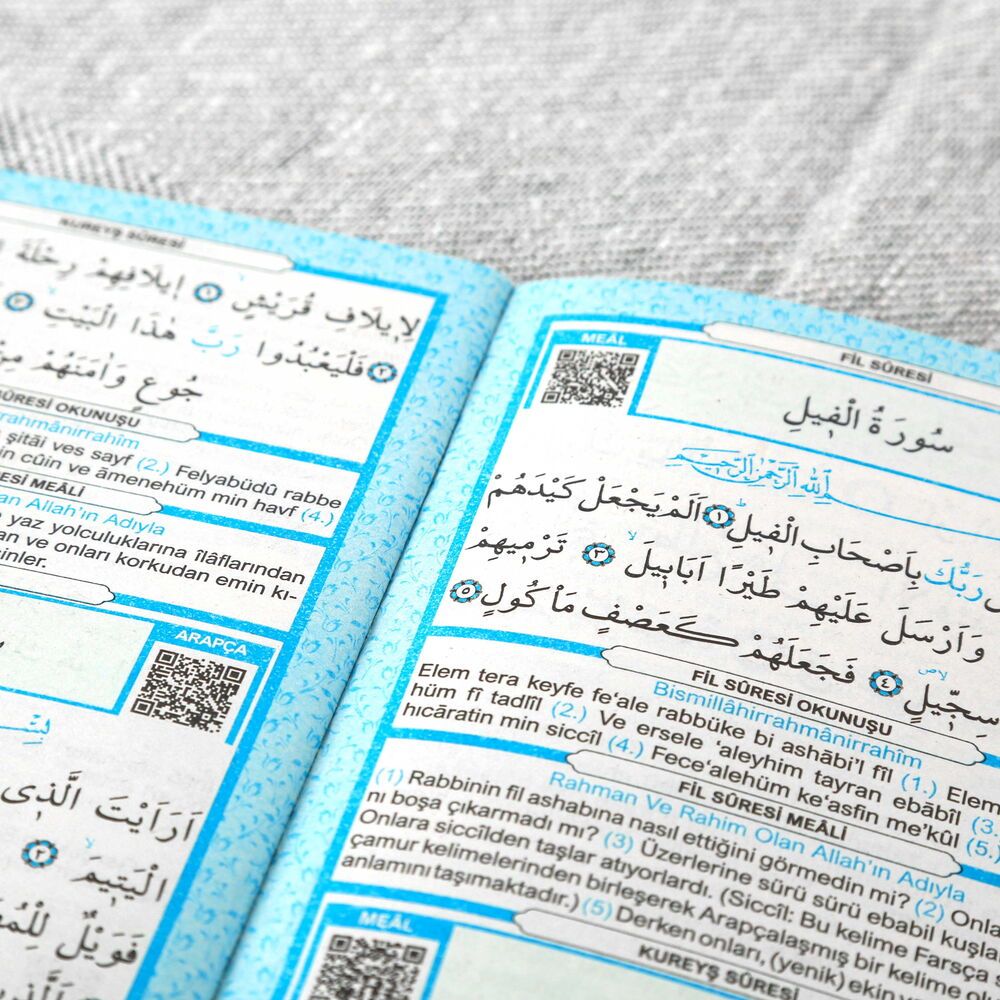 KUREYŞ SÛRESİ
لِاِيلَافِ قُرَيْشٍ ١ اِيلَافِهِمْ رِحْلَةَ
٢ فَلْيَعْبُدُوا رَبَّ هٰذَا الْبَيْتِ ٣
جُوعٍ وَاٰمَنَهُمْ مِنْ
SÛRESİ OKUNUŞU
rrahmânirrahîm
şitâi ves sayf (2.) Felyabüdû rabbe
in cûin ve âmenehüm min havf (4.)
ESİ MEÂLİ
an Allah'ın Adıyla
yaz yolculuklarına îlâflarından
an ve onları korkudan emin kı-
sinler.
ARAPÇA
اَرَاَيْتَ الَّذ۪ى
الْيَت۪يمَ ٢
فَوَيْلٌ لِلْمُصَ
الَّذ۪ينَ
FİL SÛRESİ
MEÂL
سُورَةُ الْف۪يلِ
بِسْمِ اللّٰهِ الرَّحْمٰنِ الرَّح۪يمِ
رَبُّكَ بِاَصْحَابِ الْف۪يلِ ١ اَلَمْ يَجْعَلْ كَيْدَهُمْ
وَاَرْسَلَ عَلَيْهِمْ طَيْرًا اَبَاب۪يلَ ٣ تَرْم۪يهِمْ
سِجّ۪يلٍ ٤ فَجَعَلَهُمْ كَعَصْفٍ مَاْكُولٍ ٥
FİL SÛRESİ OKUNUŞU
Bismillâhirrahmânirrahîm
Elem tera keyfe fe'ale rabbüke bi ashâbi'l fîl (1.) Elem
hüm fî tadlîl (2.) Ve ersele 'aleyhim tayran ebâbîl (3.
hıcâratin min siccîl (4.) Fece'alehüm ke'asfin me'kûl (5.)
FİL SÛRESİ MEÂLİ
Rahman Ve Rahim Olan Allah'ın Adıyla
(1) Rabbinin fil ashabına nasıl ettiğini görmedin mi? (2) Onla
nı boşa çıkarmadı mı? (3) Üzerlerine sürü sürü ebabil kuşla
Onlara siccîlden taşlar atıyorlardı. (Siccîl: Bu kelime Farsça
çamur kelimelerinden birleşerek Arapçalaşmış bir kelime ol
anlamını taşımaktadır.) (5) Derken onları, (yenik) ekin
KUREYŞ SÛRESİ
MEÂL